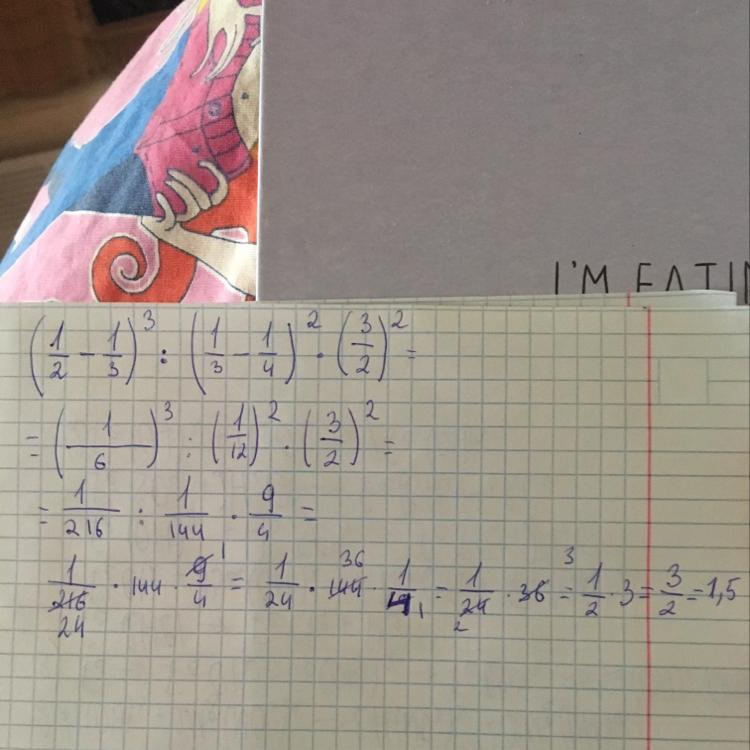 I'M EATIN
(1/2 - 1/3)^3 : (1/3 - 1/4)^2 · (3/2)^2 =
= (1/6)^3 : (1/12)^2 · (3/2)^2 =
= 1/216 : 1/144 · 9/4 =
1/216 24 · 144 · 9/4 1 = 1/24 · 144 36 · 1/4 1 = 1/24 2 · 36 3 = 1/2 · 3 = 3/2 = 1,5